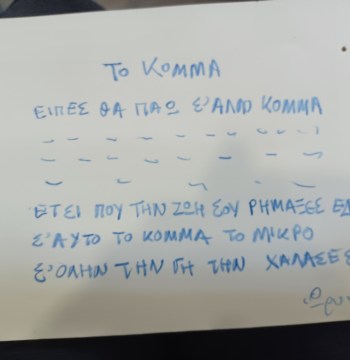 ΤΟ ΚΟΜΜΑ
ΕΙΠΕΣ ΘΑ ΠΑΩ Σ'ΑΛΛΟ ΚΟΜΜΑ
ΕΤΣΙ ΠΟΥ ΤΗΝ ΖΩΗ ΣΟΥ ΡΗΜΑΞΕΣ
Σ'ΑΥΤΟ ΤΟ ΚΟΜΜΑ ΤΟ ΜΙΚΡΟ
Σ'ΟΛΗΝ ΤΗΝ ΓΗ ΤΗΝ ΧΑΛΑΣΕΣ